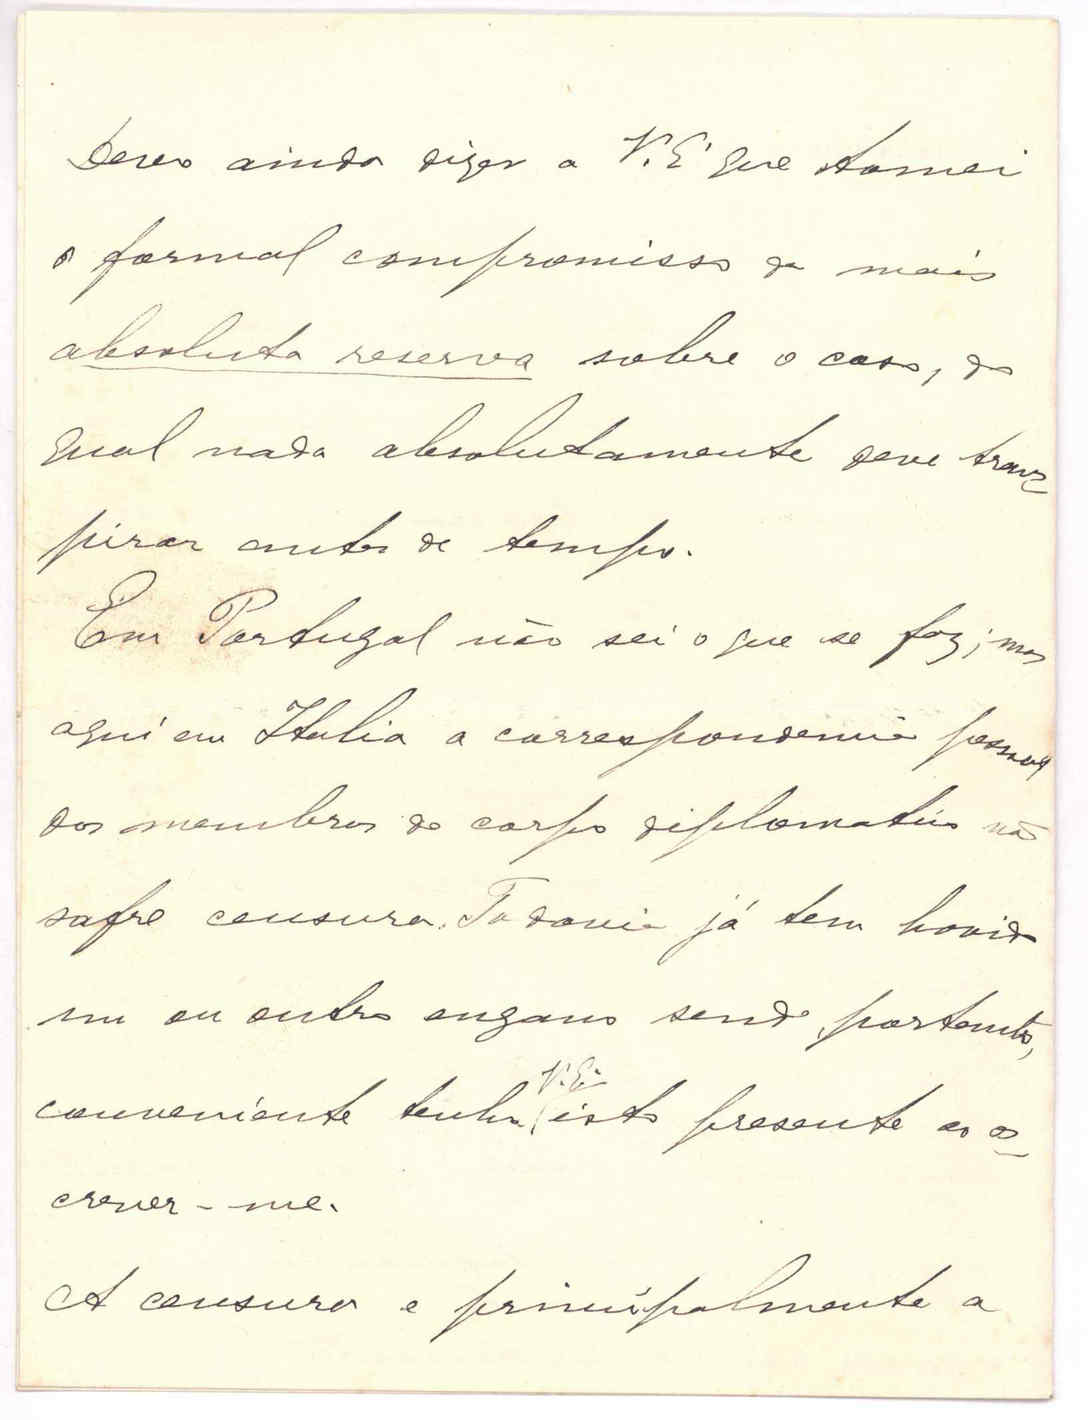 Devo ainda dizer a V. Eˣ que tomei
o formal compromisso da mais
absoluta reserva sobre o caso, do
qual nada absolutamente deve trans-
pirar antes de tempo.
Em Portugal não sei o que se faz; mas
aqui em Italia a correspondencia pessoal
dos membros do corpo diplomatico não
sofre censura. Todavia já tem havido
um ou outro engano sendo, portanto,
conveniente tenha V. Eˣ isto presente ao es-
crever-me.
A censura e principalmente a